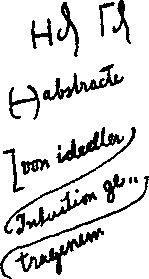 (-) abstracte
von ideeller
Intuition ge..
tragenem